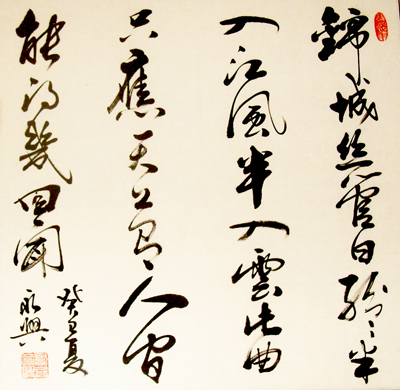 錦城絲管日紛〻半
入江風半入雲此曲
只應天上有人間
能得幾回聞
癸丑夏
永興